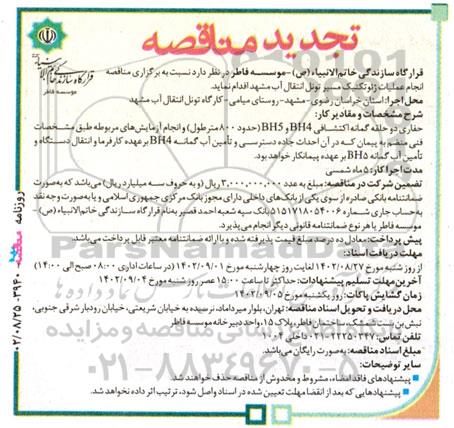 تجدید مناقصه
قرارگاه سازندگی خاتم الانبیاء
موسسه فاطر
قرارگاه سازندگی خاتم الانبیاء (ص) -موسسه فاطر در نظر دارد نسبت به برگزاری مناقصه
انجام عملیات ژئوتکنیک مسیر تونل انتقال آب مشهد اقدام نماید.
محل اجرا: استان خراسان رضوی -مشهد- روستای میامی- کارگاه تونل انتقال آب مشهد
شرح مشخصات و مقادیر کار:
حفاری دو حلقه گمانه اکتشافی BH4 و BH5 (حدود ۸۰۰ متر طول) و انجام آزمایش‌های مربوطه طبق مشخصات
فنی منضم به پیمان که در آن احداث جاده دسترسی و تأمین آب گمانه BH4 برعهده کارفرما و انتقال دستگاه و
تأمین آب گمانه BH5 بر عهده پیمانکار خواهد بود.
مدت اجرا کار: ۵ ماه شمسی
تضمین شرکت در مناقصه: مبلغ به عدد ۳,۰۰۰,۰۰۰,۰۰۰ ریال (و به حروف سه میلیارد ریال) می‌باشد که به صورت
ضمانتنامه بانکی صادره از سوی یکی از بانک‌های داخلی دارای مجوز بانک مرکزی جمهوری اسلامی و یا به صورت وجه نقد
به حساب جاری شماره ۵۱۵۱۷۱۸۰۵۴۰۰۶ بانک سپه شعبه احمد قصیر به نام قرارگاه سازندگی خاتم الانبیاء (ص) -
موسسه فاطر یا هر نوع ضمانتنامه قانونی دیگر انجام می‌پذیرد.
پیش پرداخت: معادل ده درصد مبلغ قیمت پذیرفته شده و با ارائه ضمانتنامه معتبر قابل پرداخت می‌باشد.
مهلت دریافت اسناد:
از روز شنبه مورخ ۱۴۰۲/۰۸/۲۷ لغایت روز چهارشنبه مورخ ۱۴۰۲/۰۹/۰۱ (در ساعات اداری ۰۸:۰۰ صبح الی ۱۴:۰۰)
آخرین مهلت تسلیم پیشنهادات: حداکثر تا ساعت ۱۵:۰۰ عصر روز شنبه مورخ ۱۴۰۲/۰۹/۰۴
زمان گشایش پاکات: روز یکشنبه مورخ ۱۴۰۲/۰۹/۰۵
محل دریافت و تحویل اسناد: تهران، بلوار میرداماد، نرسیده به خیابان شریعتی، خیابان رودبار شرقی جنوبی،
نبش بن بست مشک، ساختمان فاطر، پلاک ۱۵، واحد دبیرخانه موسسه فاطر
مبلغ اسناد مناقصه: به صورت رایگان می‌باشد.
سایر توضیحات:
پیشنهادهای فاقد امضاء، مشروط و مخدوش از مناقصه حذف خواهند شد.
پیشنهادهایی که بعد از انقضا مهلت تعیین شده در اسناد واصل شود، ترتیب اثر داده نخواهد شد.
روزنامه مناقصه - ۳۹۴۰ - ۰۲/۰۸/۲۵
ParsNamadData
۰۲۱-۸۸۳۴۹۶۷۰-۵